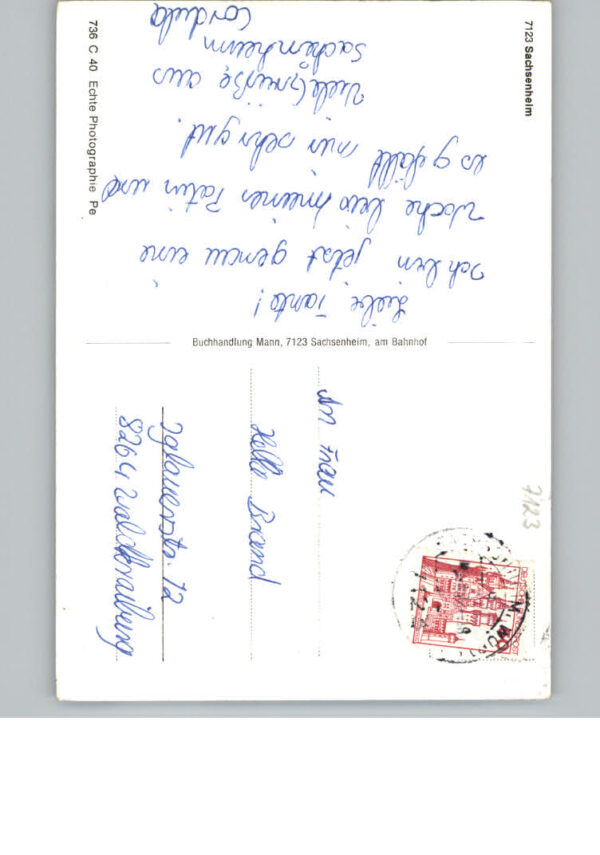 7123 Sachsenheim
Liebe Tante!
Ich bin jetzt genau eine
Woche bei meiner Patin und
es gefällt mir sehr gut.
Viele Grüße aus
Sachsenheim
Cordula
736 C 40 Echte Photographie Pe
Buchhandlung Mann, 7123 Sachsenheim, am Bahnhof
An Frau
Hella Brand
Iglauerstr. 12
8264 Waldkraiburg
7123